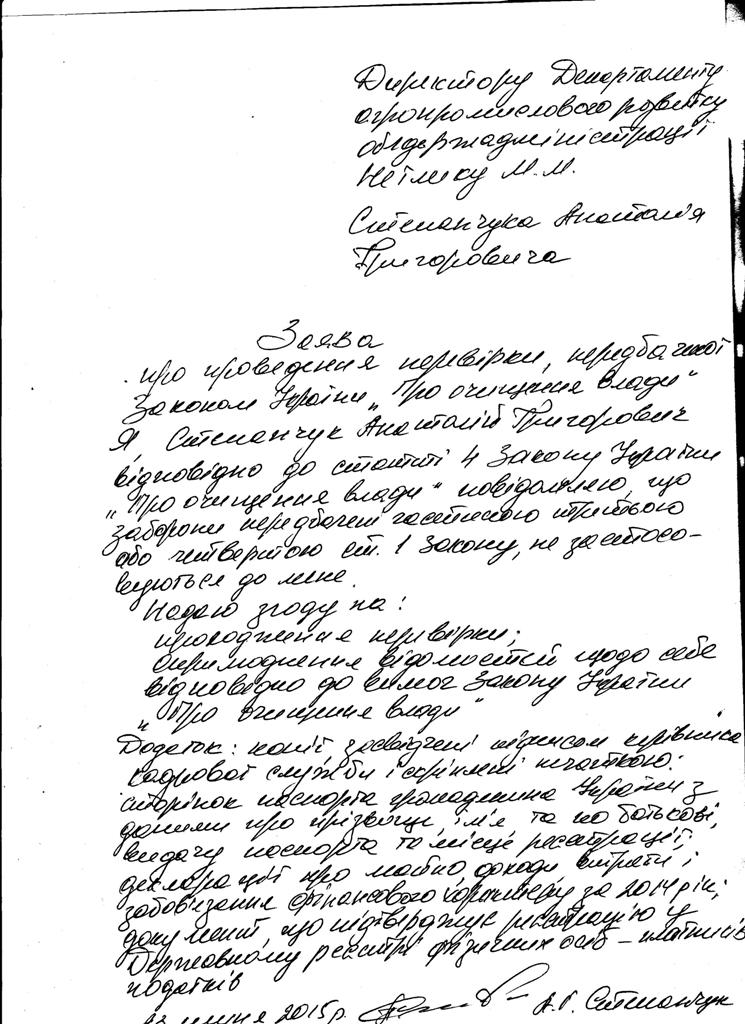 Директору Департаменту
агропромислового розвитку
облдержадміністрації
Нетлику М.М.
Степанчука Анатолія
Григоровича
Заява
про проведення перевірки, передбаченої
Законом України „Про очищення влади“
Я, Степанчук Анатолій Григорович
відповідно до статті 4 Закону України
„Про очищення влади“ повідомляю, що
заборони передбачені частиною третьою
або четвертою ст. 1 Закону, не застосо-
вуються до мене.
Надаю згоду на:
проходження перевірки;
оприлюднення відомостей щодо себе
відповідно до вимог Закону України
„Про очищення влади“
Додаток: копії засвідчені підписом керівника
кадрової служби і скріплені печаткою:
сторінок паспорта громадянина України з
даними про прізвище, ім'я та по батькові,
видачу паспорта та місце реєстрації;
декларації про майно, доходи, витрати і
зобов'язання фінансового характеру за 2014 рік;
документ, що підтверджує реєстрацію у
Державному реєстрі фізичних осіб – платників
податків
2015 р. А.Г. Степанчук